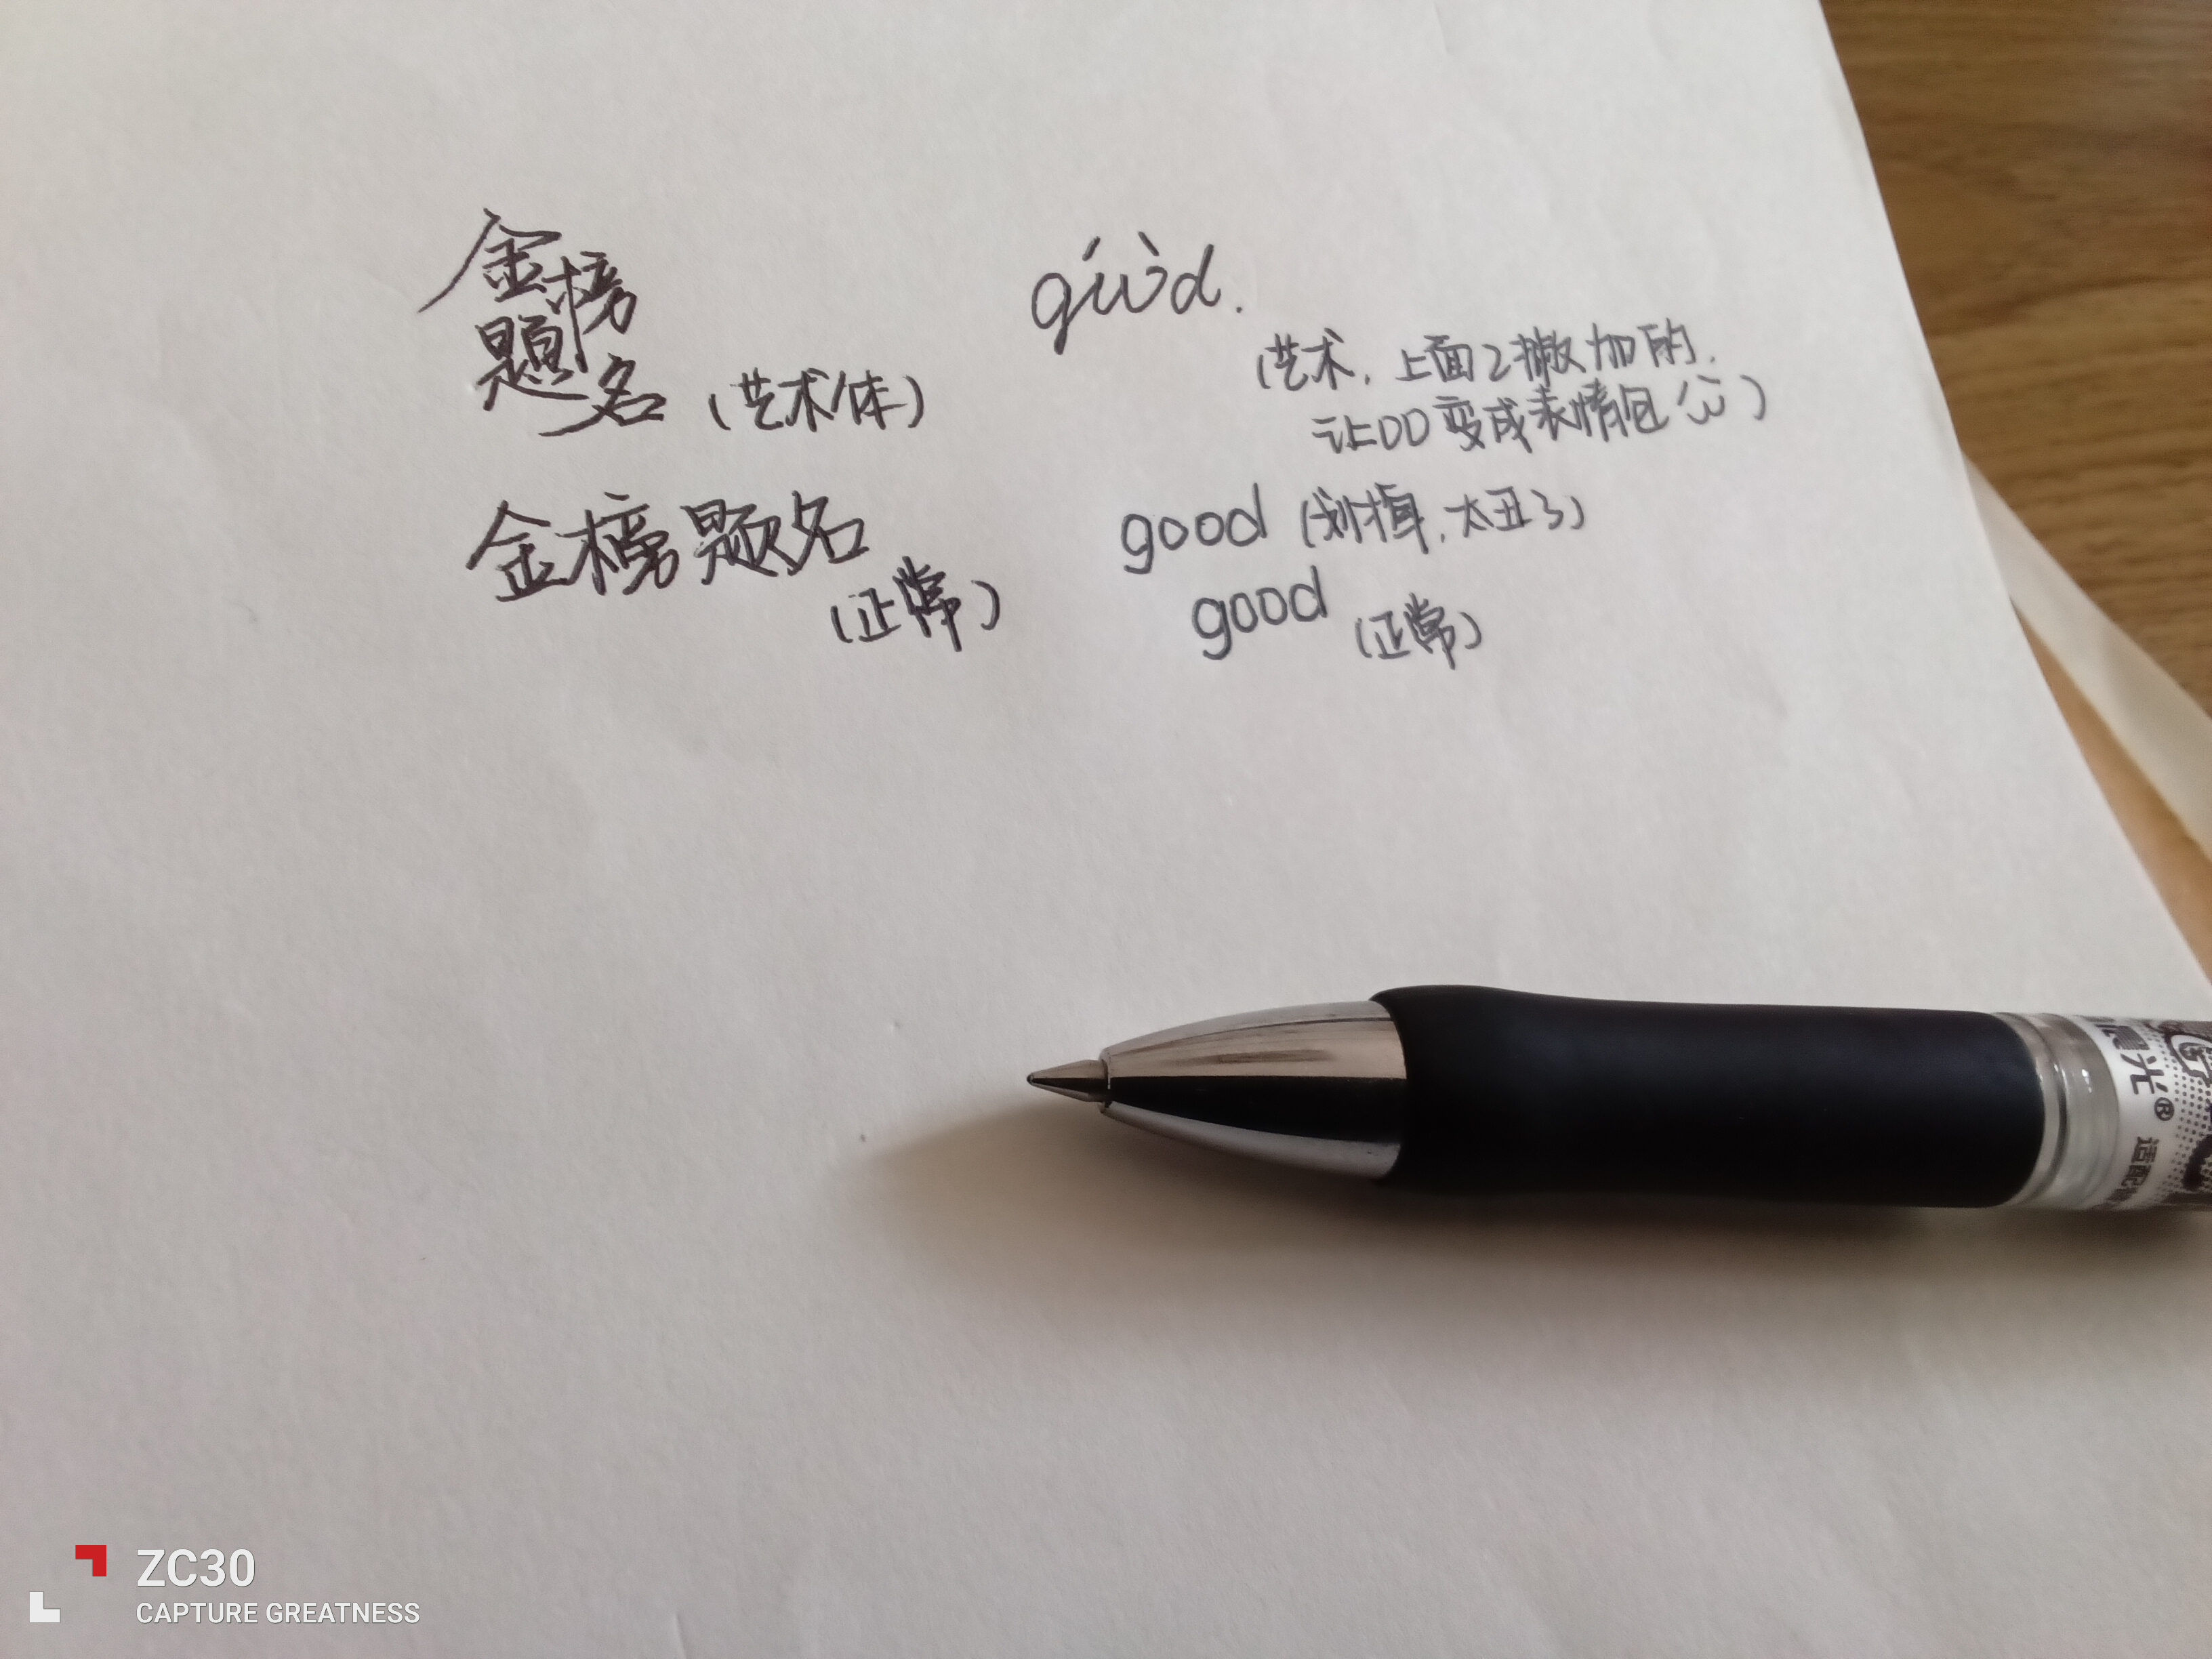 金榜
题名（艺术体）
金榜题名
（正常）
gώὼd.
（艺术，上面2撇加的，
让OO变成表情包(ώ)）
good（划掉，太丑了）
good（正常）
晨光®
适配
ZC30
CAPTURE GREATNESS